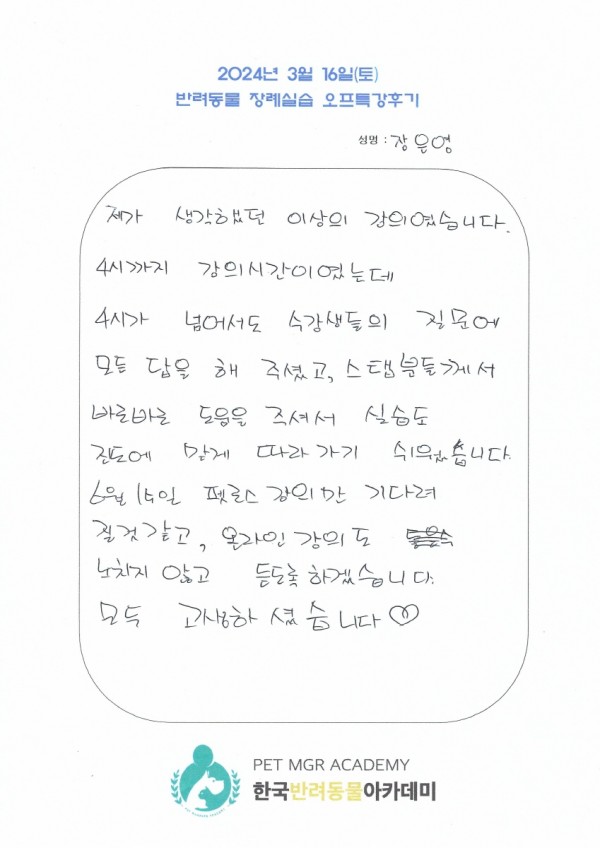 2024년 3월 16일(토)
반려동물 장례실습 오프특강후기
성명 : 장은영
제가 생각했던 이상의 강의였습니다.
4시까지 강의시간이였는데
4시가 넘어서도 수강생들의 질문에
모든 답을 해 주셨고, 스탭분들께서
바로바로 도움을 주셔서 실습도
진도에 맞게 따라가기 쉬웠습니다.
6월 15일 펫로스 강의만 기다려
질것같고, 온라인강의도
노치지 않고 듣도록하겠습니다.
모두 고생하셨습니다♡
PET MGR ACADEMY
한국반려동물아카데미